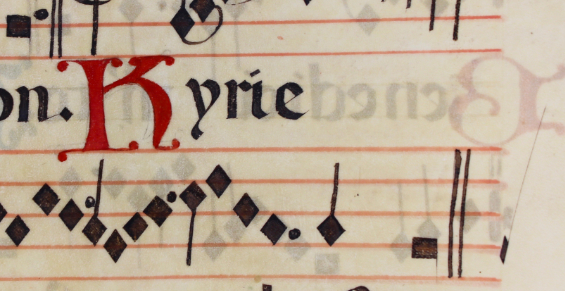 on. Kyrie